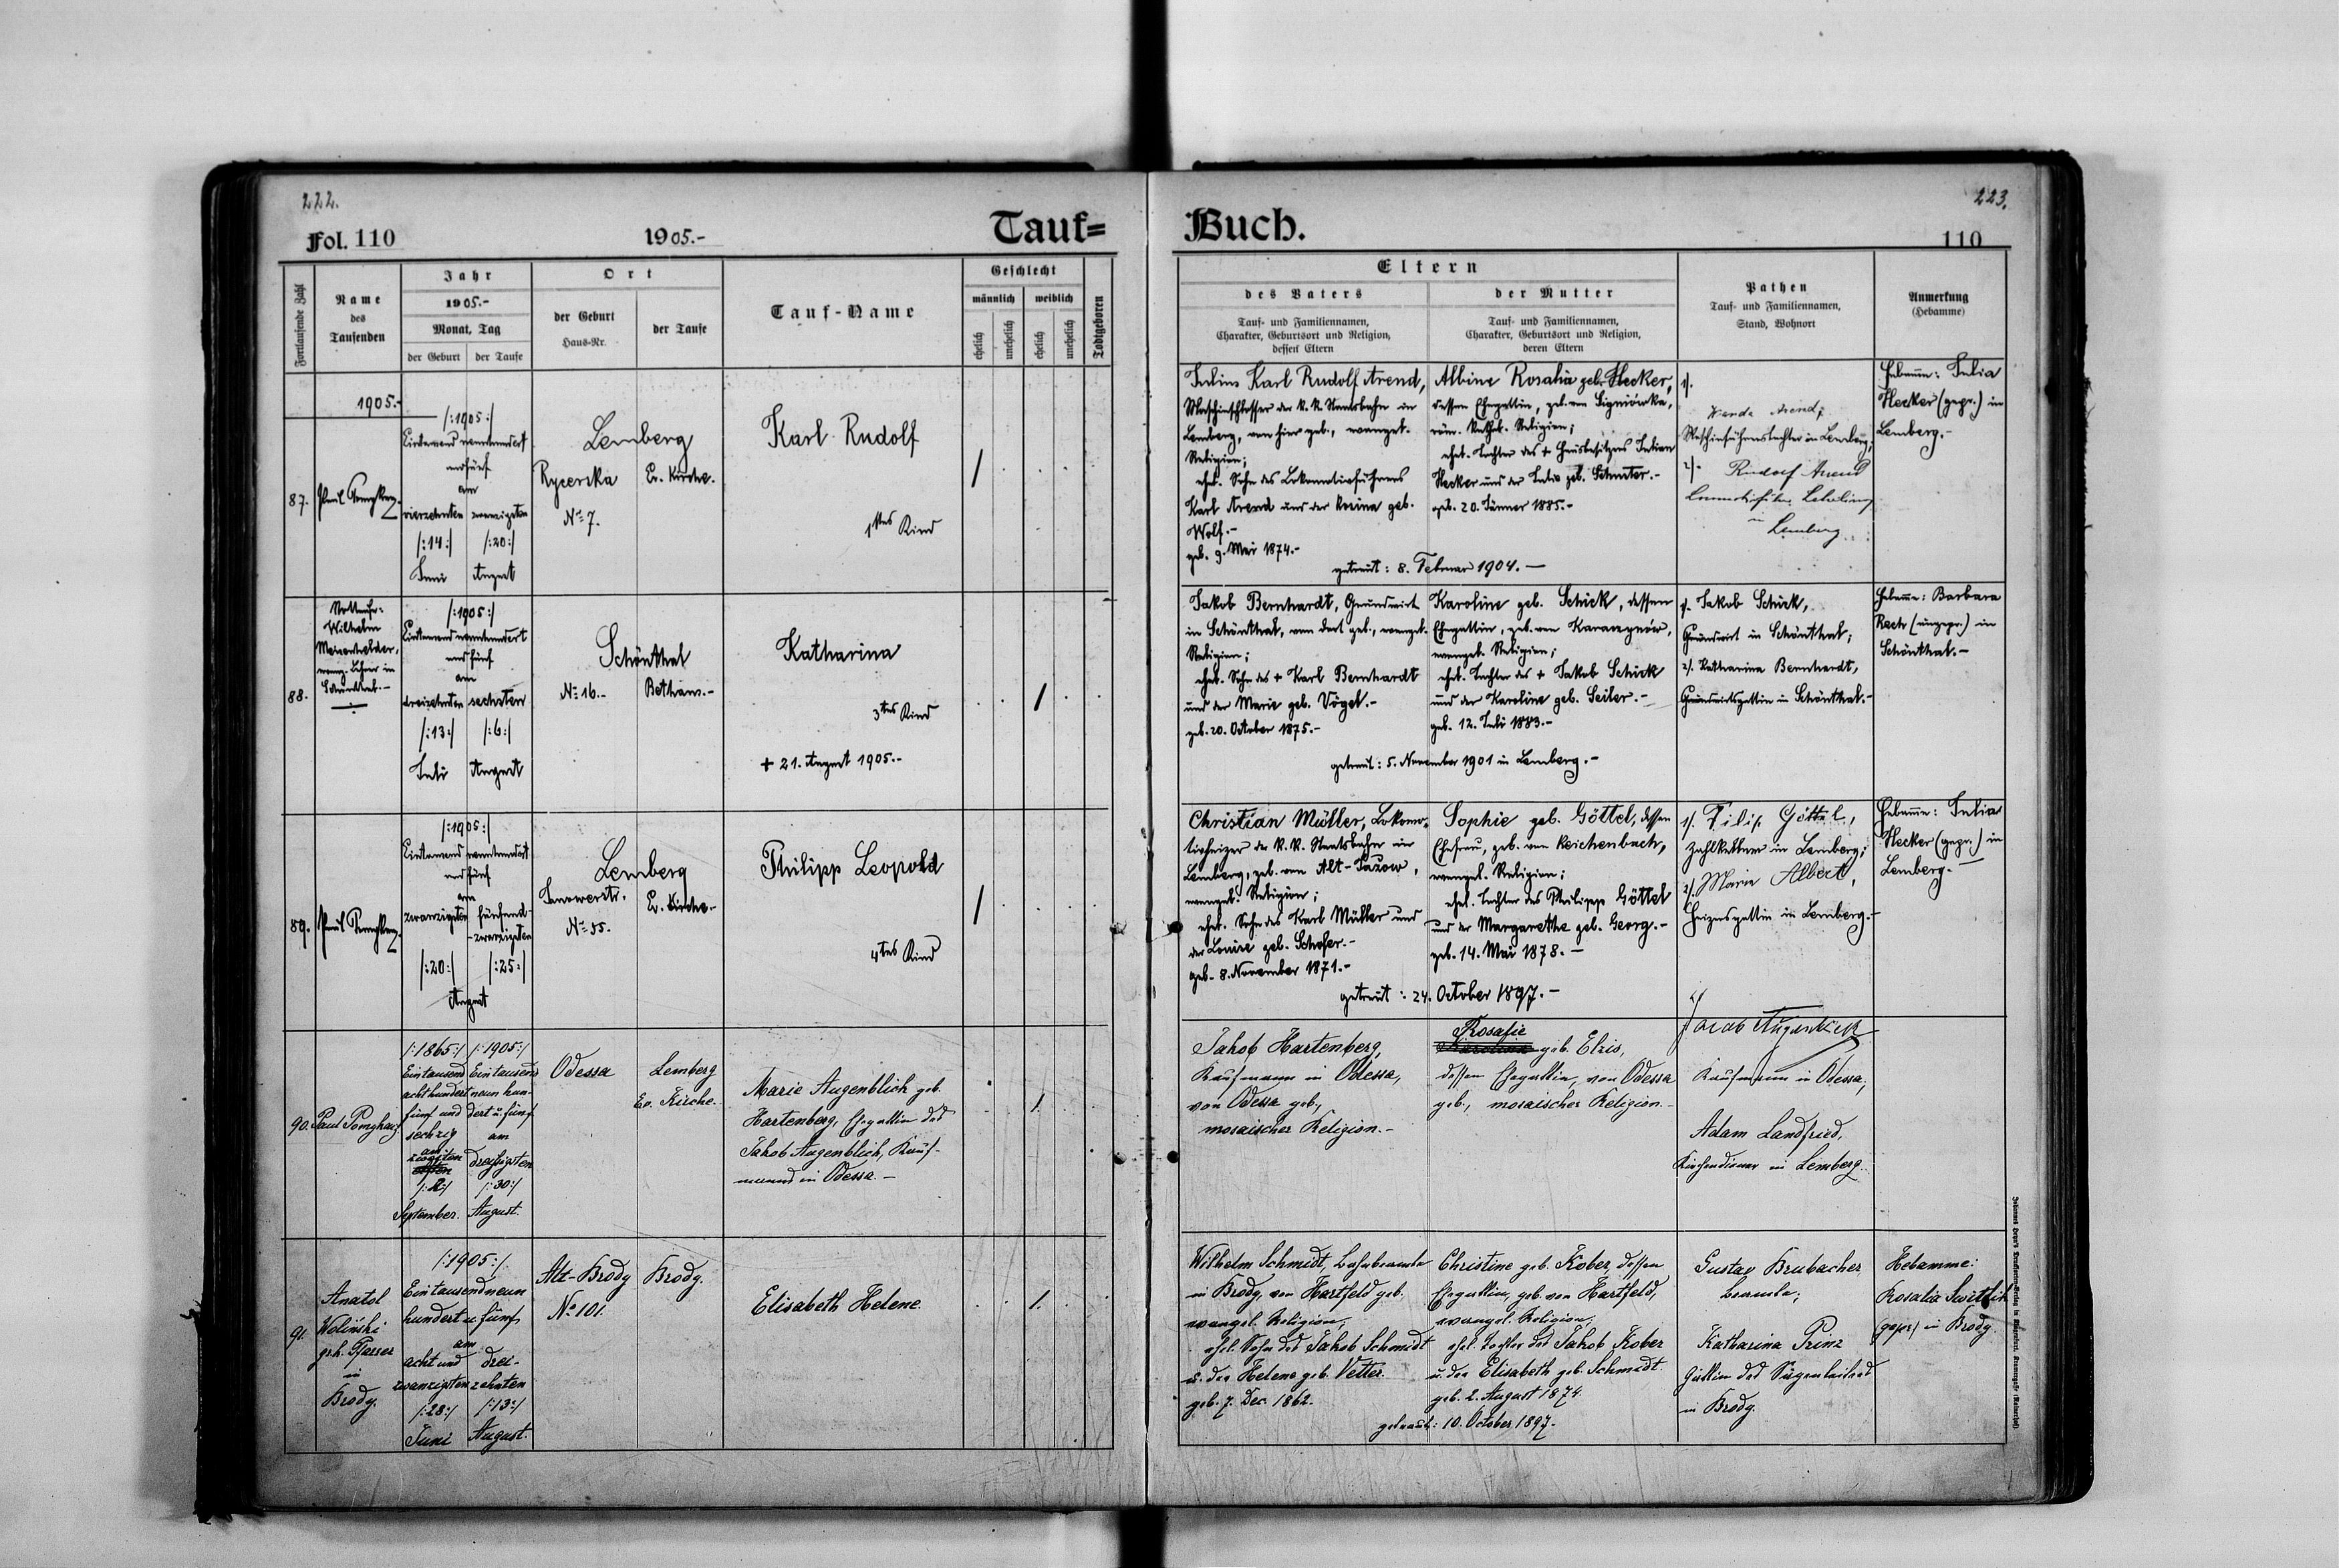 222.
Fol. 110
1905.-
Tauf=
Fortlaufende Zahl
Name
des
Taufenden
Jahr
1905.-
Monat, Tag
der Geburt
der Taufe
Ort
der Geburt
Haus-Nr.
der Taufe
Tauf-Name
Geschlecht
männlich
weiblich
ehelich
unehelich
ehelich
unehelich
Todtgeboren
1905.-
87.
/:1905:/
Eintausend neunhundert
und fünf
am
vierzehnten
zwanzigsten
/:14:/
/:20:/
Juni
August
Lemberg
Rycerska
Ev. Kirche.
No 7.
Karl Rudolf
1tes Kind
/
88.
Wilhelm
evang. Lehrer in
Schönthal.-
/:1905:/
Eintausend neunhundert
und fünf
am
dreizehnten
sechsten
/:13:/
/:6:/
Juli
August
Schönthal
No 16.-
Bethaus.-
Katharina
3tes Kind
+ 21. August 1905.-
/
89.
/:1905:/
Eintausend neunhundert
und fünf
am
zwanzigsten
fünfund-
-zwanzigsten
/:20:/
/:25:/
August
Lemberg
Janowerstr.
Ev. Kirche.-
No 55.
Philipp Leopold
4tes Kind
/
90.
/:1865:/
/:1905:/
Eintausend
Eintausend
achthundert
neunhun-
fünf und
dert u. fünf
sechzig
am
am
zweiten
dreißigsten
/:2:/
/:30:/
September.
August.
Odessa
Lemberg
Ev. Kirche.
Marie Augenblick geb.
Hartenberg, Ehegattin des
Jakob Augenblick, Kauf-
manns in Odessa.-
/.
91.
Anatol
Woliński
grh. Pfarrer
in
Brody.
/:1905:/
Eintausendneun
hundert u. fünf
am
acht und
drei-
zwanzigsten
zehnten
/:28:/
/:13:/
Juni
August.
Alt-Brody
Brody.
No 101.
Elisabeth Helene.
/.
223.
Buch.
110
Eltern
des Vaters
Tauf- und Familiennamen,
Charakter, Geburtsort und Religion,
dessen Eltern
der Mutter
Tauf- und Familiennamen,
Charakter, Geburtsort und Religion,
deren Eltern
Pathen
Tauf- und Familiennamen,
Stand, Wohnort
Anmerkung
(Hebamme)
Julius Karl Rudolf Arend,
Maschinschlosser der k.k. Staatsbahn in
Lemberg, von hier geb., evangel.
Religion;
ehel. Sohn des Lokomotivführers
Karl Arend und der Rosina geb.
Wolf.-
geb. 9. Mai 1874.-
Albine Rosalia geb. Hecker,
dessen Ehegattin, geb. von Sygniówka,
röm. kathol. Religion;
ehel. Tochter des + Hausbesitzers Julian
Hecker und der Julia geb. Schuster.-
geb. 20. Jänner 1885.-
getraut: 8. Februar 1904.-
1/.
Wanda Arend,
Maschinführerstochter in Lemberg;
2/.
Rudolf Arend
in
Lemberg.
Hebamme: Julia
Hecker (gepr.) in
Lemberg.-
Jakob Bernhardt, Grundwirt
in Schönthal, von dort geb., evangel.
Religion;
ehel. Sohn des + Karl Bernhardt
und der Marie geb. Vogel.-
geb. 20. October 1875.-
Karoline geb. Schick, dessen
Ehegattin, geb. von Karaczynów,
evangel. Religion;
ehel. Tochter des + Jakob Schick
und der Karoline geb. Seiler.-
geb. 12. Juli 1883.-
getraut: 5. November 1901 in Lemberg.-
1/. Jakob Schick,
Grundwirt in Schönthal;
2/. Katharina Bernhardt,
Grundwirtsgattin in Schönthal.-
Hebamme: Barbara
Rech (ungepr.) in
Schönthal.-
Christian Müller, Lokomo-
tivheizer der k.k. Staatsbahn in
Lemberg, geb. von Alt-Jazow,
evangel. Religion;
ehel. Sohn des Karl Müller und
der Louise geb. Schofer.-
geb. 8. November 1871.-
Sophie geb. Göttel, dessen
Ehefrau, geb. von Reichenbach,
evangel. Religion;
ehel. Tochter des Philipp Göttel
und der Margarethe geb. Georg.-
geb. 14. Mai 1878.-
getraut: 24. October 1897.-
1/. Filip Göttel,
Zahlkellner in Lemberg;
2/. Marie Albert,
Heizersgattin in Lemberg.-
Hebamme: Julia
Hecker (gepr.) in
Lemberg.-
Jakob Hartenberg,
Kaufmann in Odessa,
von Odessa geb.,
mosaischer Religion.-
Rosalie
geb. Elzis,
dessen Ehegattin, von Odessa
geb., mosaischer Religion.-
Jacob Augenblick
Kaufmann in Odessa;
Adam Landfried,
Kirchendiener in Lemberg.
Wilhelm Schmidt, Bahnbeamte
in Brody, von Hartfeld geb.
evangel. Religion,
ehel. Sohn des Jakob Schmidt
u. der Helene geb. Vetter.
geb. 7. Dec. 1862.
Christine geb. Kober, dessen
Ehegattin, geb. von Hartfeld,
evangel. Religion,
ehel. Tochter des Jakob Kober
u. der Elisabeth geb. Schmidt.
geb. 2. August 1874.
getraut: 10. October 1897.
Gustav Brubacher
Beamte;
Katharina Prinz
Gattin des
in Brody.
Hebamme:
Rosalia
(gepr.) in Brody.